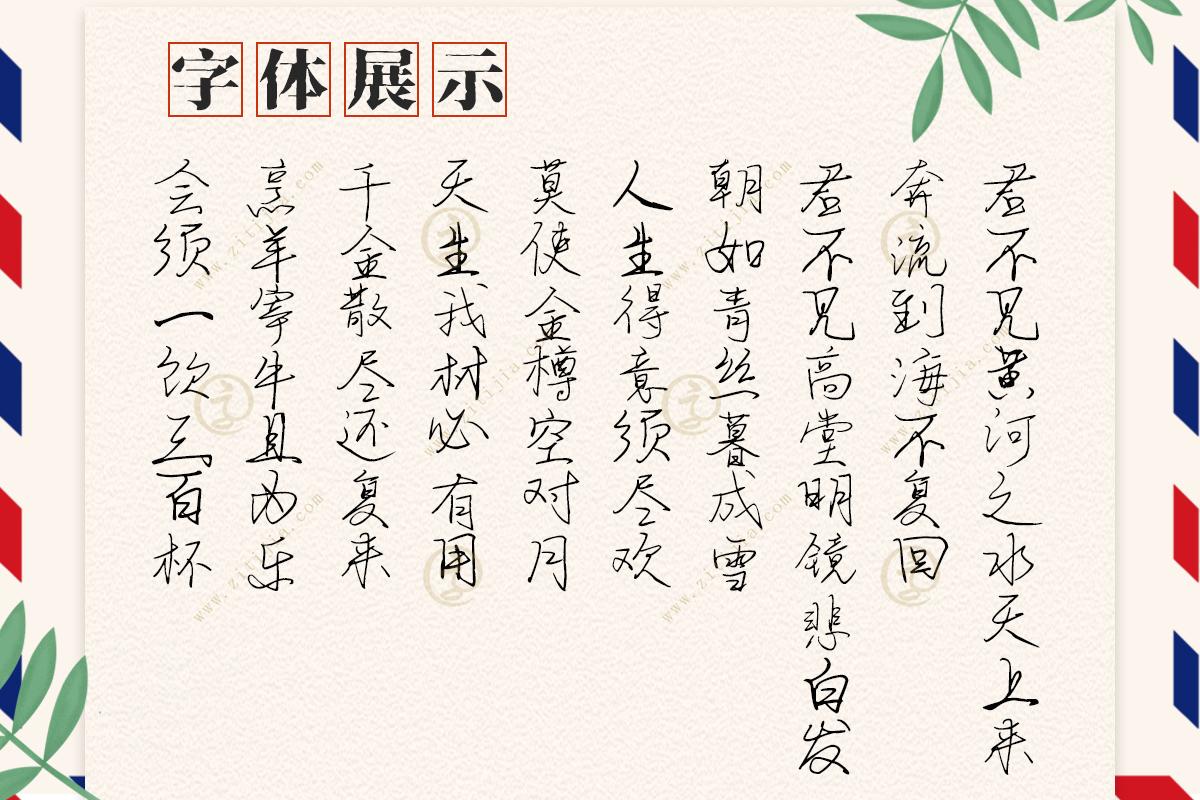 字体展示
君不见黄河之水天上来
奔流到海不复回
君不见高堂明镜悲白发
朝如青丝暮成雪
人生得意须尽欢
莫使金樽空对月
天生我材必有用
千金散尽还复来
烹羊宰牛且为乐
会须一饮三百杯